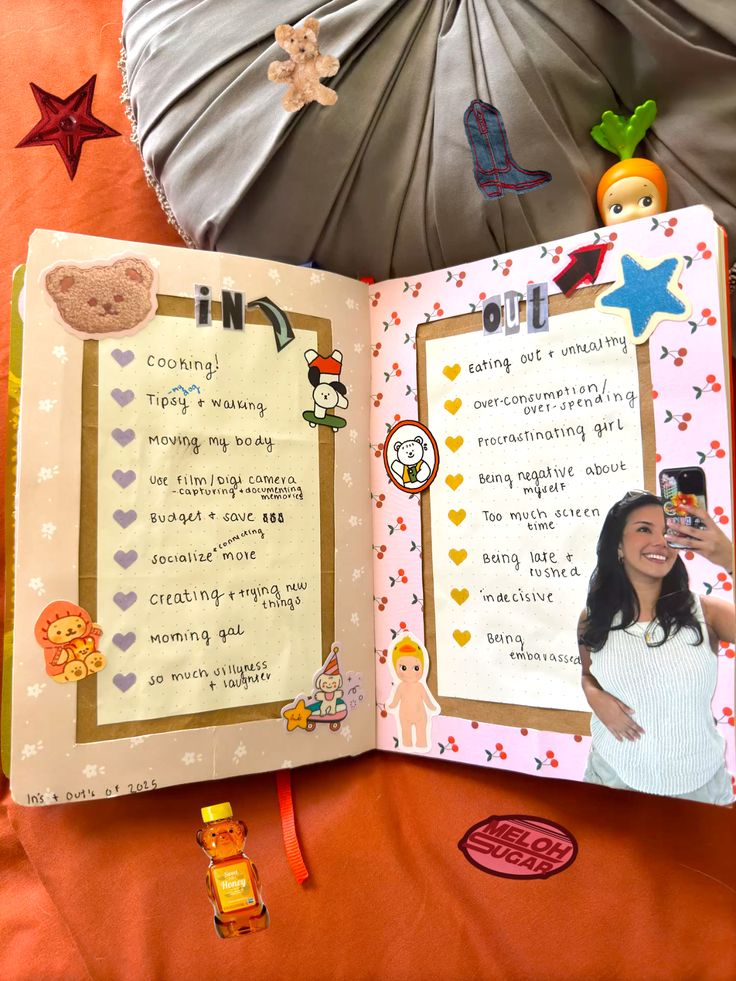 in
Cooking!
- my dog
Tipsy + walking
Moving my body
Use film/Digi camera
- capturing + documenting
memories
Budget + save $$$
+ connecting
Socialize more
Creating + trying new
things
Morning gal
So much sillyness
+ laughter
In's + Out's of 2025
out
Eating out + unhealthy
over-consumption/
over-spending
Procrastinating girl
Being negative about
myself
Too much screen
time
Being late +
rushed
indecisive
Being
embarassed
Honey
MELOH
SUGAR